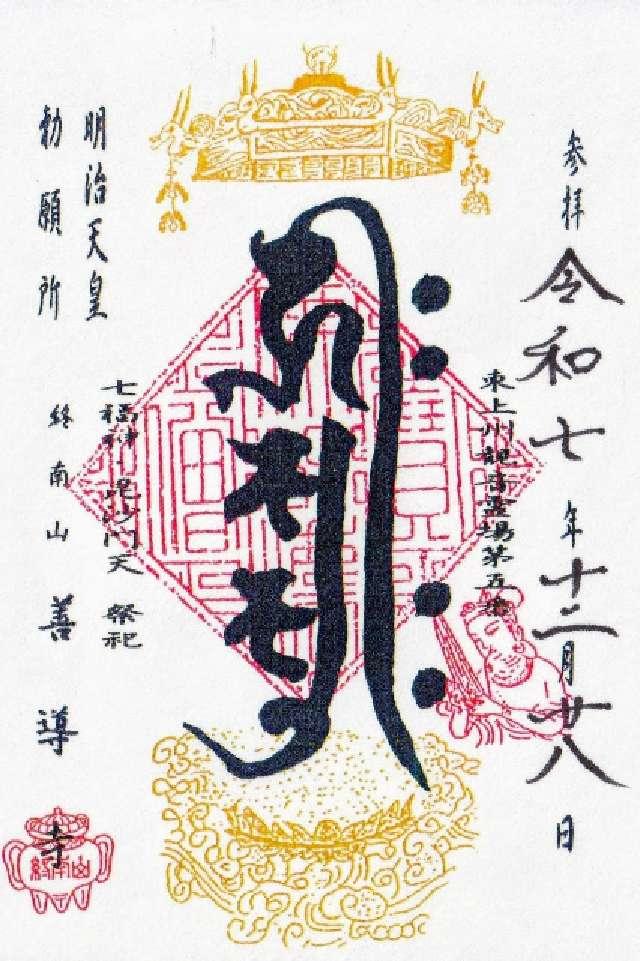 参拝 令和七年十二月廿八日
東上州観音霊場第五番
明治天皇
勅願所
七福神・毘沙門天 祭祀
終南山 善導寺
終南山